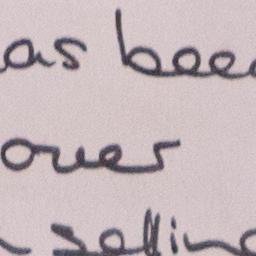 as bee
over
selling